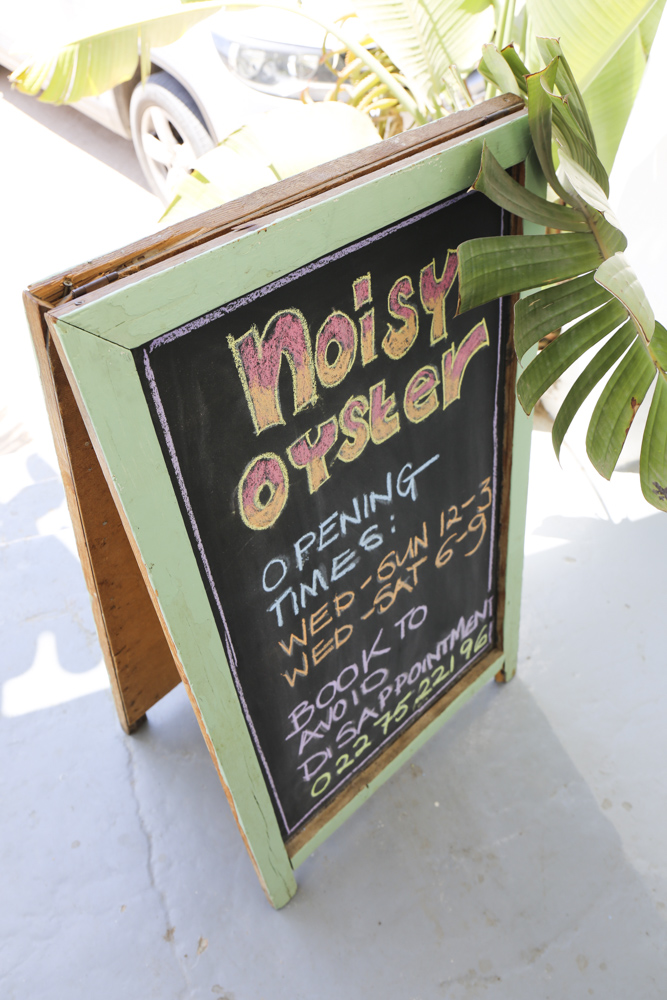 noisy
oyster
OPENING
TIMES:
WED-SUN 12-3
WED-SAT 6-9
BOOK TO
AVOID
DISAPPOINTMENT
022 75 221 96